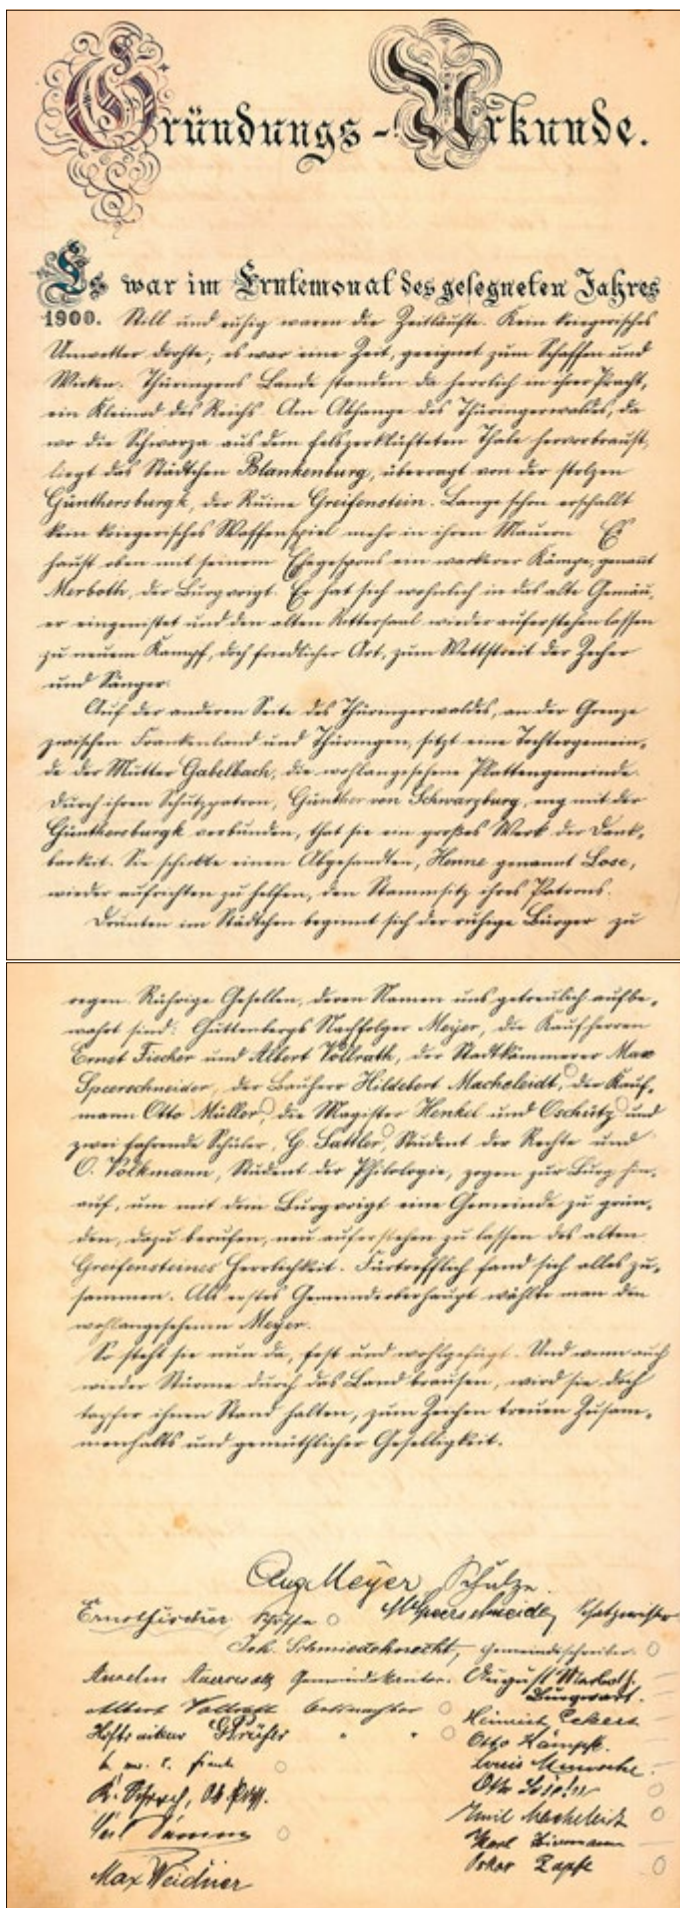 Gründungs-Urkunde.
Es war im Erntemonat des gesegneten Jahres
1900. Still und ruhig waren die Zeitläufte. Kein kriegerisches
Unwetter drohte; es war eine Zeit, geeignet zum Schaffen und
Wirken. Thüringens Lande standen da herrlich in ihrer Pracht,
ein Kleinod des Reichs. Am Abhange des Thüringerwaldes, da
wo die Schwarza aus dem felszerklüfteten Thale hervorbraust,
liegt das Städtchen Blankenburg, überragt von der stolzen
Günthersburgk, der Ruine Greifenstein. Lange schon erschallt
kein kriegerisches Waffenspiel mehr in ihren Mauern. Es
haust oben mit seinem Ehegespons ein wackerer Kämpe, genannt
Merboth, der Burgvoigt. Er hat sich wohnlich in das alte Gemäu-
er eingenistet und den alten Rittersaal wieder auferstehen lassen
zu neuem Kampf, doch friedlicher Art, zum Wettstreit der Zecher
und Sänger.
Auf der anderen Seite des Thüringerwaldes, an der Grenze
zwischen Frankenland und Thüringen, sitzt eine Tochtergemein-
de der Mutter Gabelbach, die wohlangesehene Plattengemeinde.
Durch ihren Schutzpatron, Günther von Schwarzburg, eng mit der
Günthersburgk verbunden, that sie ein großes Werk der Dank-
barkeit. Sie schickte einen Abgesandten, Henne genannt Lose,
wieder aufrichten zu helfen, den Stammsitz ihres Patrons.
Drunten im Städtchen beginnt sich der ruhige Bürger zu
regen. Rührige Gesellen, deren Namen uns getreulich aufbe-
wahrt sind: Guttenbergs Nachfolger Meyer, die Kaufherren
Ernst Fischer und Albert Vollrath, der Stadtkämmerer Max
Speerschneider, der Bauherr Hildebert Macheleidt, der Kauf-
mann Otto Müller, die Magister Henkel und Oschütz und
zwei fahrende Schüler, G. Sattler, Student der Rechte und
O. Volkmann, Student der Philologie, zogen zur Burg hin-
auf, um mit dem Burgvoigt eine Gemeinde zu grün-
den, dazu berufen, neu auferstehen zu lassen des alten
Greifensteines Herrlichkeit. Fürtrefflich fand sich alles zu-
sammen. Als erstes Gemeindeoberhaupt wählte man den
wohlangesehenen Meyer.
So steht sie nun da, fest und wohlgefügt. Und wenn auch
wieder Stürme durch das Land brausen, wird sie doch
tapfer ihnen Stand halten, zum Zeichen treuen Zusam-
menhalts und gemüthlicher Geselligkeit.
Aug Meyer Schulze.
Ernst Fischer Schöffe MSpeerschneider, Schatzmeister
Joh. Schmiedeknecht, Gemeindeschreiber.
Gemeindekantor. August Merboth,
Burgwart.
Albert Vollrath
Heinrich Eckert
Otto Kämpfe.
Louis
Otto
Emil Macheleidt
Karl
Max Weidner
Oskar Zapfe